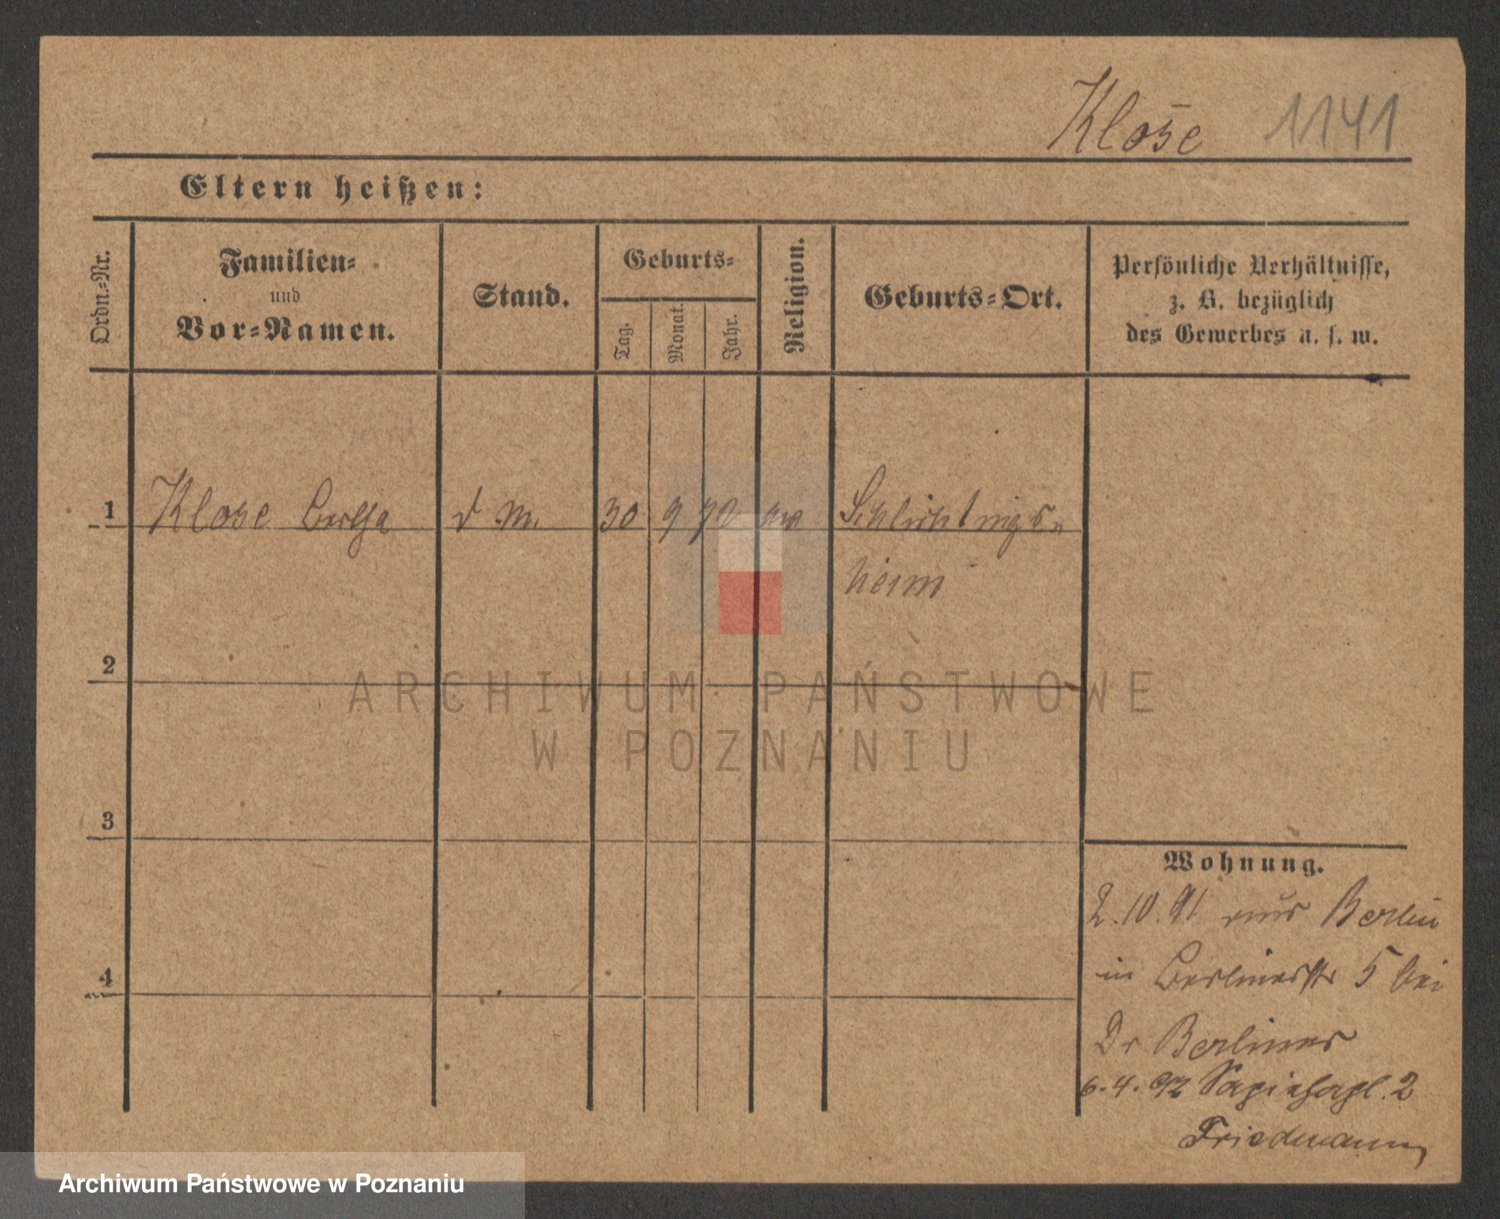 Klose 1141
Eltern heißen:
Ordn.-Nr.
Familien-
und
Vor-Namen.
Stand.
Geburts-
Tag.
Monat.
Jahr.
Religion.
Geburts-Ort.
Persönliche Verhältnisse,
z. B. bezüglich
des Gewerbes u. s. w.
1 Klose Bertha d. M. 30 9 70 Schlichtings-
heim
2
ARCHIWUM PAŃSTWOWE
W POZNANIU
3
Wohnung.
2.10.91 aus Berlin
4
in Berlinerstr 5 bei
Dr Berliner
6.4.92 Sapiehapl. 2
Friedmann
Archiwum Państwowe w Poznaniu